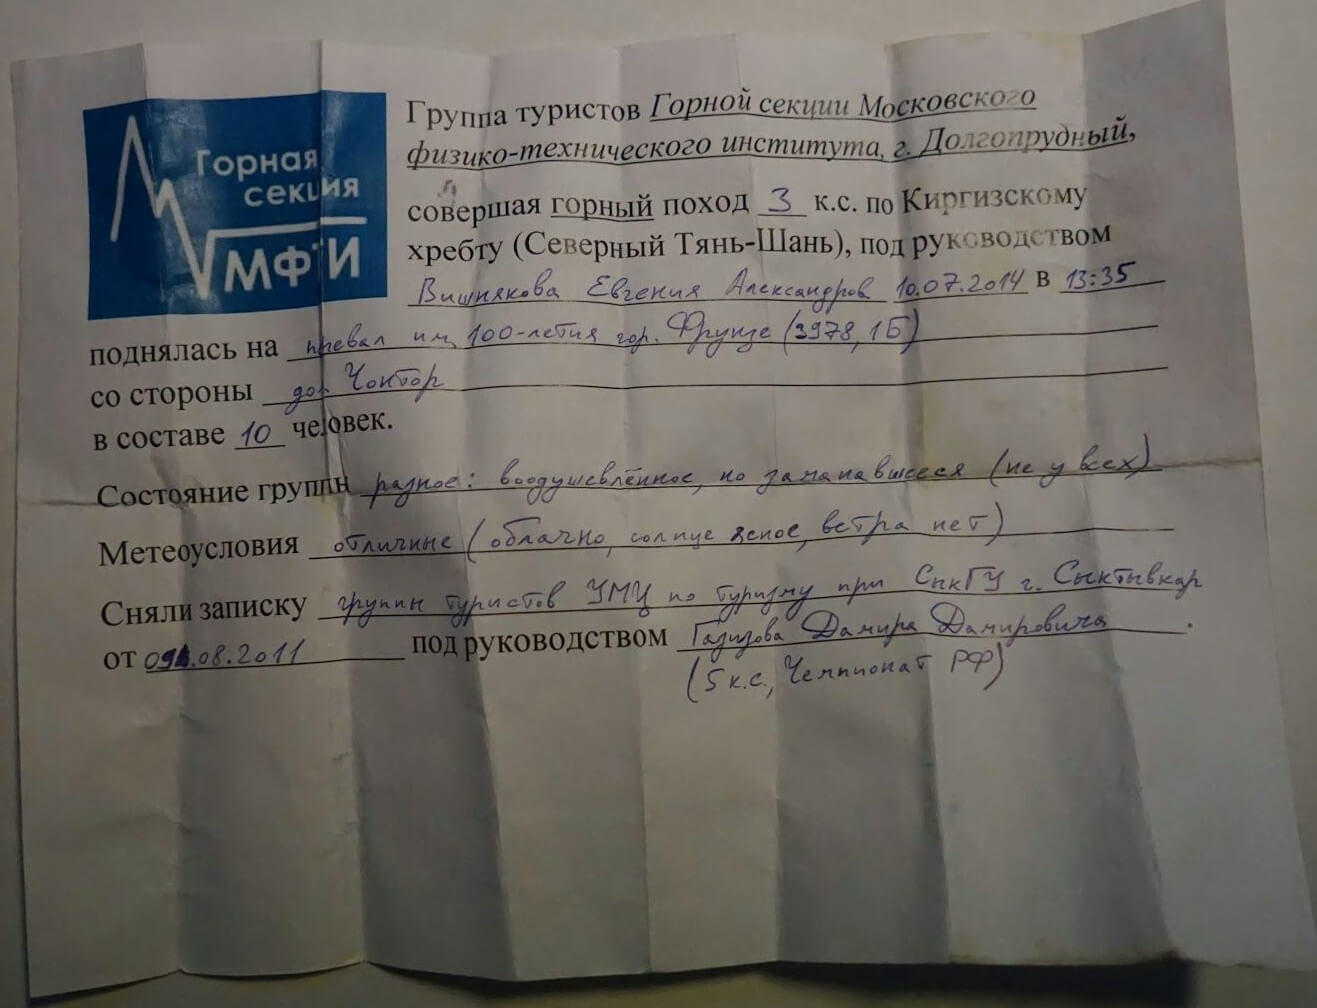 Горная
секция
МФТИ
Группа туристов Горной секции Московского
физико-технического института, г. Долгопрудный,
совершая горный поход 3 к.с. по Киргизскому
хребту (Северный Тянь-Шань), под руководством
Вишнякова Евгения Александров 10.07.2014 в 13:35
поднялась на превал им. 100-летия гор. Фрунзе (3978, 1Б)
со стороны дол. Чонтор
в составе 10 человек.
Состояние группы разное: воодушевлённое, но запапавшееся (не у всех)
Метеоусловия отличные (облачно, солнце ясное, ветра нет)
Сняли записку группы туристов УМЦ по туризму при СыкГУ г. Сыктывкар
от .08.2011 под руководством Газизова Дамира Дамировича
(5 к.с., Чемпионат РФ)